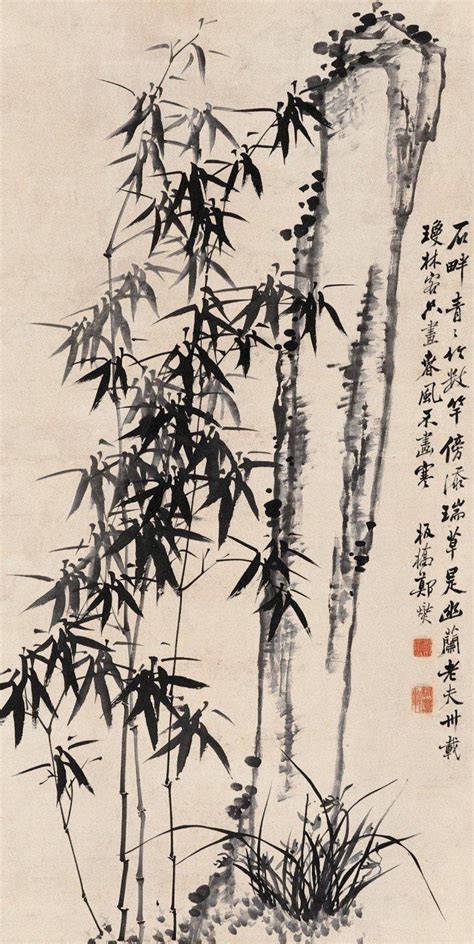 石畔青〻竹數竿傍添瑞草是幽蘭老夫卅載
瓊林客只畫春風不畫寒 板橋鄭燮